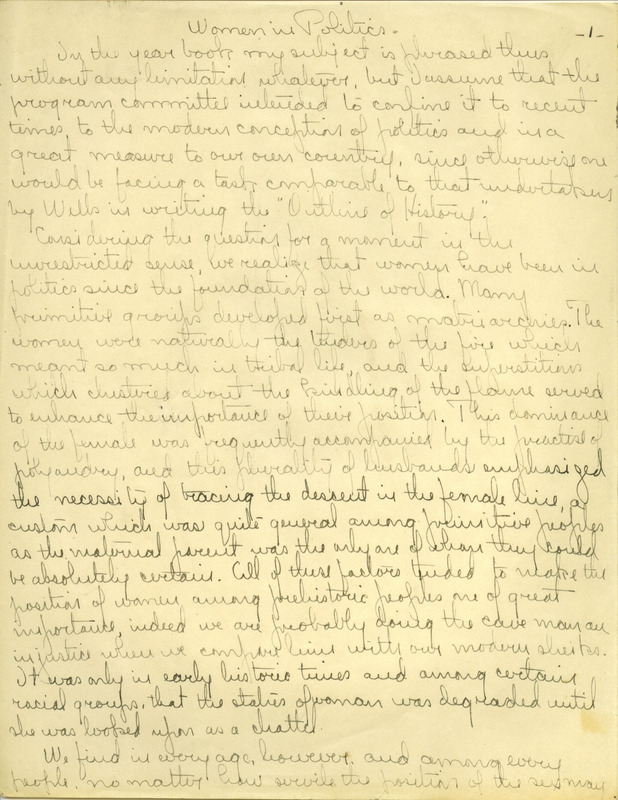 Women in Politics. -1-
In the year book my subject is phrased thus
without any limitation whatever, but I assume that the
program committee intended to confine it to recent
times, to the modern conception of politics and in a
great measure to our own country, since otherwise one
would be facing a task comparable to that undertaken
by Wells in writing the "Outline of History".
Considering the question for a moment in the
unrestricted sense, we realize that women have been in
politics since the foundation of the world. Many
primitive groups developed first as matriarchies. The
women were naturally the tenders of the fire which
meant so much in tribal life, and the superstitions
which clustered about the kindling of the flame served
to enhance the importance of their position. This dominance
of the female was frequently accompanied by the practise of
polyandry, and this plurality of husbands emphasized
the necessity of tracing the descent in the female line, a
custom which was quite general among primitive peoples
as the maternal parent was the only one of whom they could
be absolutely certain. All of these factors tended to make the
position of women among prehistoric peoples one of great
importance, indeed we are probably doing the cave man an
injustice when we compare him with our modern sheiks.
It was only in early historic times and among certain
racial groups, that the status of woman was degraded until
she was looked upon as a chattel.
We find in every age, however, and among every
people, no matter how servile the position of the sex may